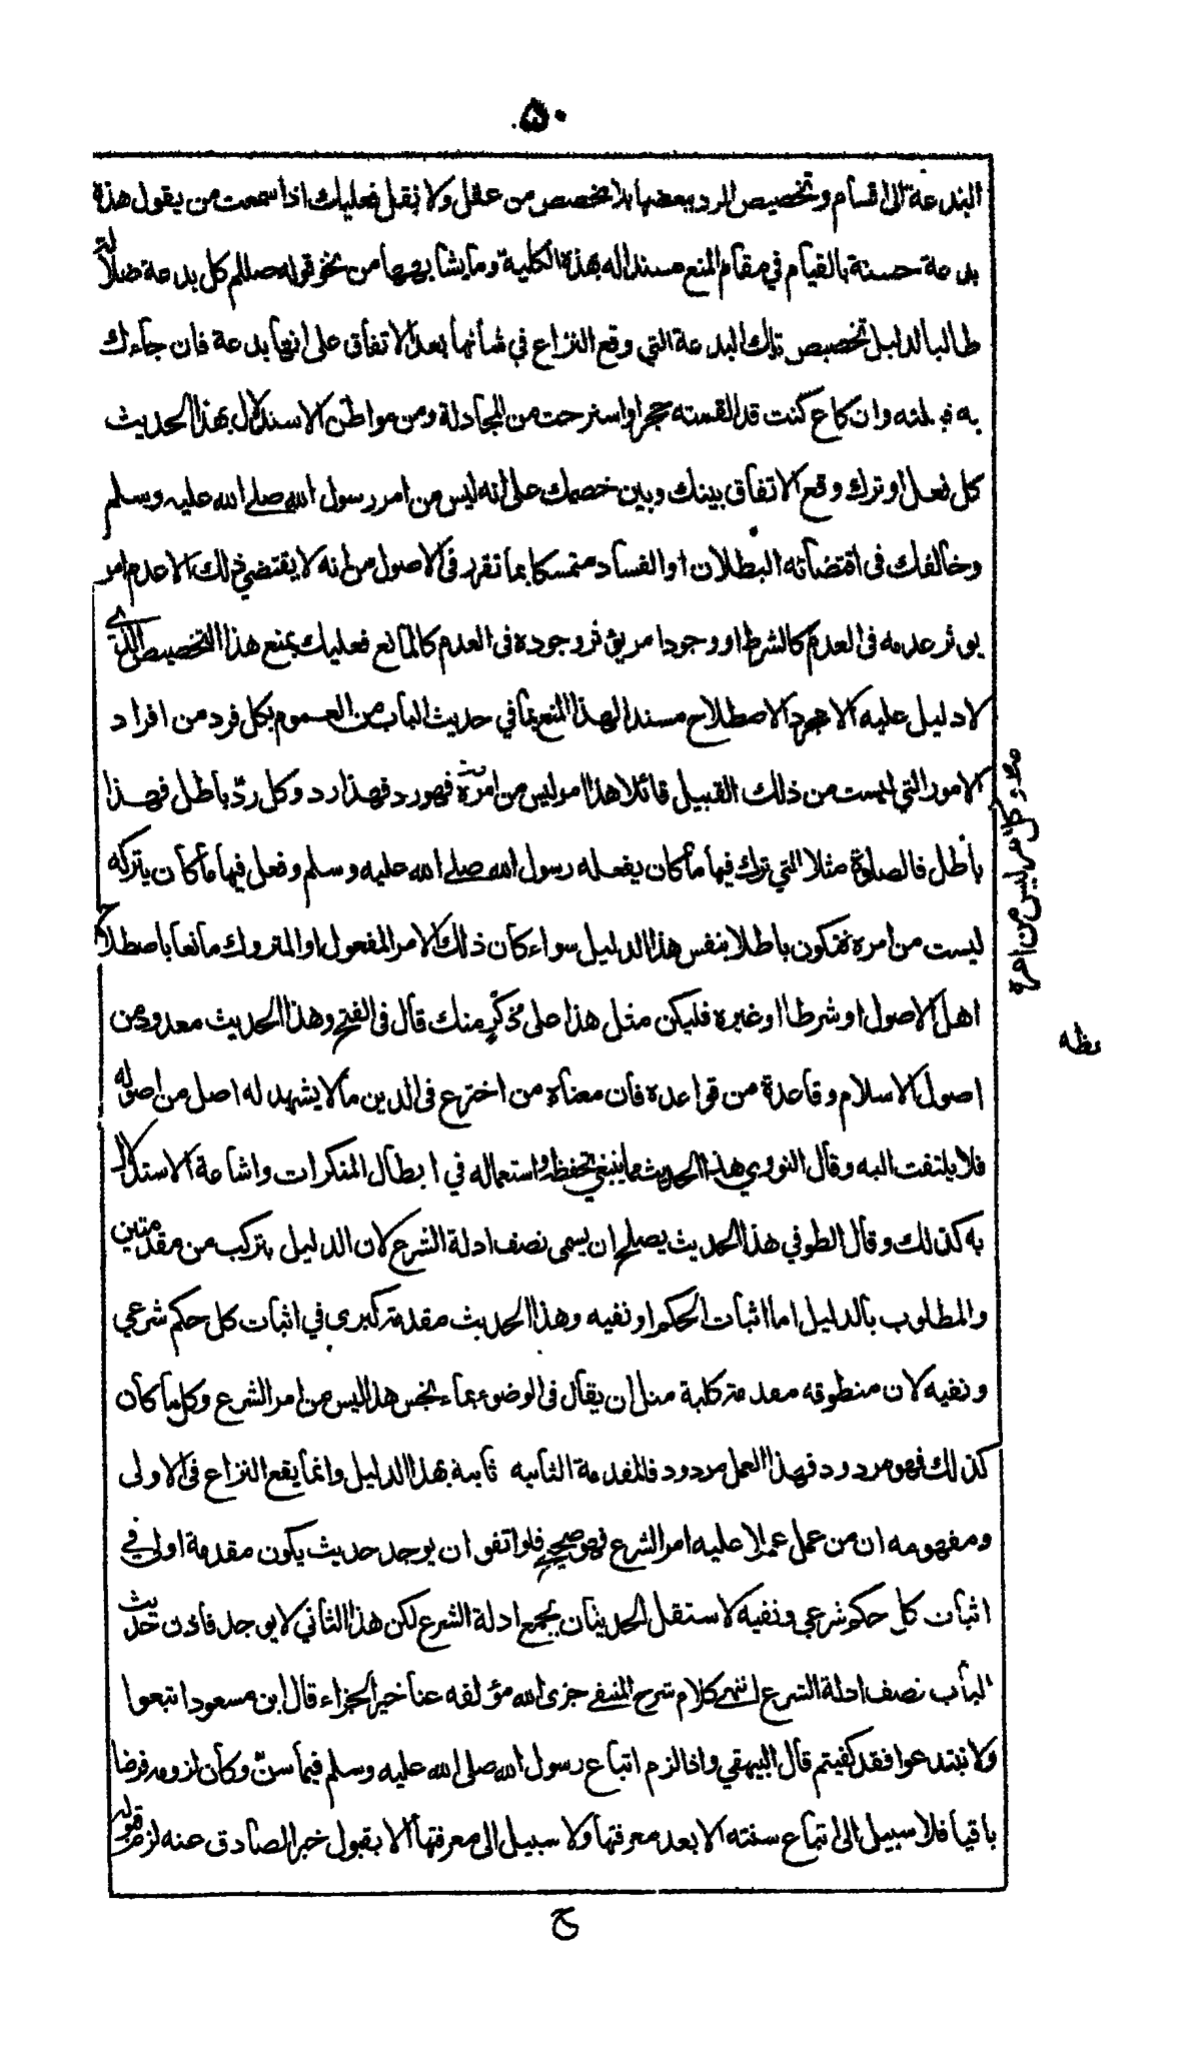 ۵۰
البدعة الى اقسام وتخصيص الرد ببعضها بلا مخصص من عقل ولا نقل فعليك اذا سمعت من يقول هذه
بدعة حسنة بالقيام في مقام المنع مسندا له بهذه الكلية وما يشابهها من نحو قوله صللم كل بدعة ضلالة
طالبا لدليل تخصيص تلك البدعة التي وقع النزاع في شأنها بعد الاتفاق على انها بدعة فان جاءك
به قبلته وان كاع كنت قد القمته حجرا واسترحت من المجادلة ومن مواطن الاستدلال بهذا الحديث
كل فعل او ترك وقع الاتفاق بينك وبين خصمك على انه ليس من امر رسول الله صلے الله عليه وسلم
وخالفك فى اقتضائه البطلان او الفساد متمسكا بما تقرر فى الاصول من انه لا يقتضي ذلك الا عدم امر
يوثر عدمه فى العدم كالشرط او وجود امر يؤثر وجوده فى العدم كالمانع فعليك بمنع هذا التخصيص الذي
لا دليل عليه الا مجرد الاصطلاح مسندا لهذا المنع بما في حديث الباب من العموم بكل فرد من افراد
الامور التي ليست من ذلك القبيل قائلا هذا امر ليس من امره فهو رد فهذا رد وكل ردّ باطل فهذا
باطل فالصلوة مثلا التي ترك فيها ما كان يفعله رسول الله صلے الله عليه وسلم وفعل فيها ما كان يتركه
ليست من امره فتكون باطلا بنفس هذا الدليل سواء كان ذلك الامر المفعول او المتروك مانعا باصطلاح
اهل الاصول او شرطا او غيره فليكن مثل هذا على ذكر منك قال فى الفتح وهذا الحديث معدود من
اصول الاسلام وقاعدة من قواعده فان معناه من اخترع فى الدين ما لا يشهد له اصل من اصوله
فلا يلتفت اليه وقال النووي هذا الحديث مما ينبغي تحفظه واستعماله في ابطال المنكرات واشاعة الاستدلال
به كذلك وقال الطوفي هذا الحديث يصلح ان يسمى نصف ادلة الشرع لان الدليل يتركب من مقدمتين
والمطلوب بالدليل اما اثبات الحكم او نفيه وهذا الحديث مقدمة كبرى في اثبات كل حكم شرعي
ونفيه لان منطوقه مقدمة كلية مثل ان يقال فى الوضوء بماء نجس هذا ليس من امر الشرع وكل ما كان
كذلك فهو مردود فهذا العمل مردود فالمقدمة الثانيه ثابتة بهذا الدليل وانما يقع النزاع فى الاولى
ومفهومه ان من عمل عملا عليه امر الشرع فهو صحيح فلو اتفق ان يوجد حديث يكون مقدمة اولى في
اثبات كل حكم شرعي ونفيه لاستقل الحديثان بجميع ادلة الشرع لكن هذا الثاني لا يوجد فاذن حديث
الباب نصف ادلة الشرع انتهى كلام شرح المنتقى جزى الله مؤلفه عنا خير الجزاء قال ابن مسعود اتبعوا
ولا تبتدعوا فقد كفيتم قال البيهقي واذا لزم اتباع رسول الله صلى الله عليه وسلم فيما سنّ وكان لزومه فرضا
باقيا فلا سبيل الى اتباع سنته الا بعد معرفتها ولا سبيل الى معرفتها الا بقبول خبر الصادق عنه لزم قبوله
وكل امر ليس من امره
ح